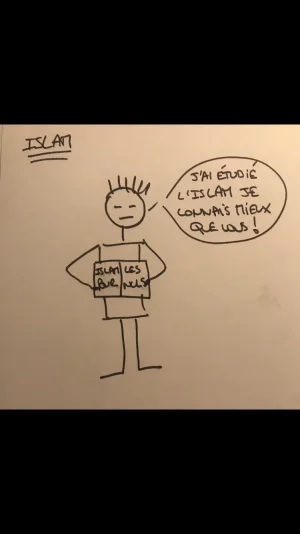 ISLAM
J'AI ÉTUDIÉ
L'ISLAM JE
CONNAIS MIEUX
QUE VOUS !
ISLAM LES
POUR NULS